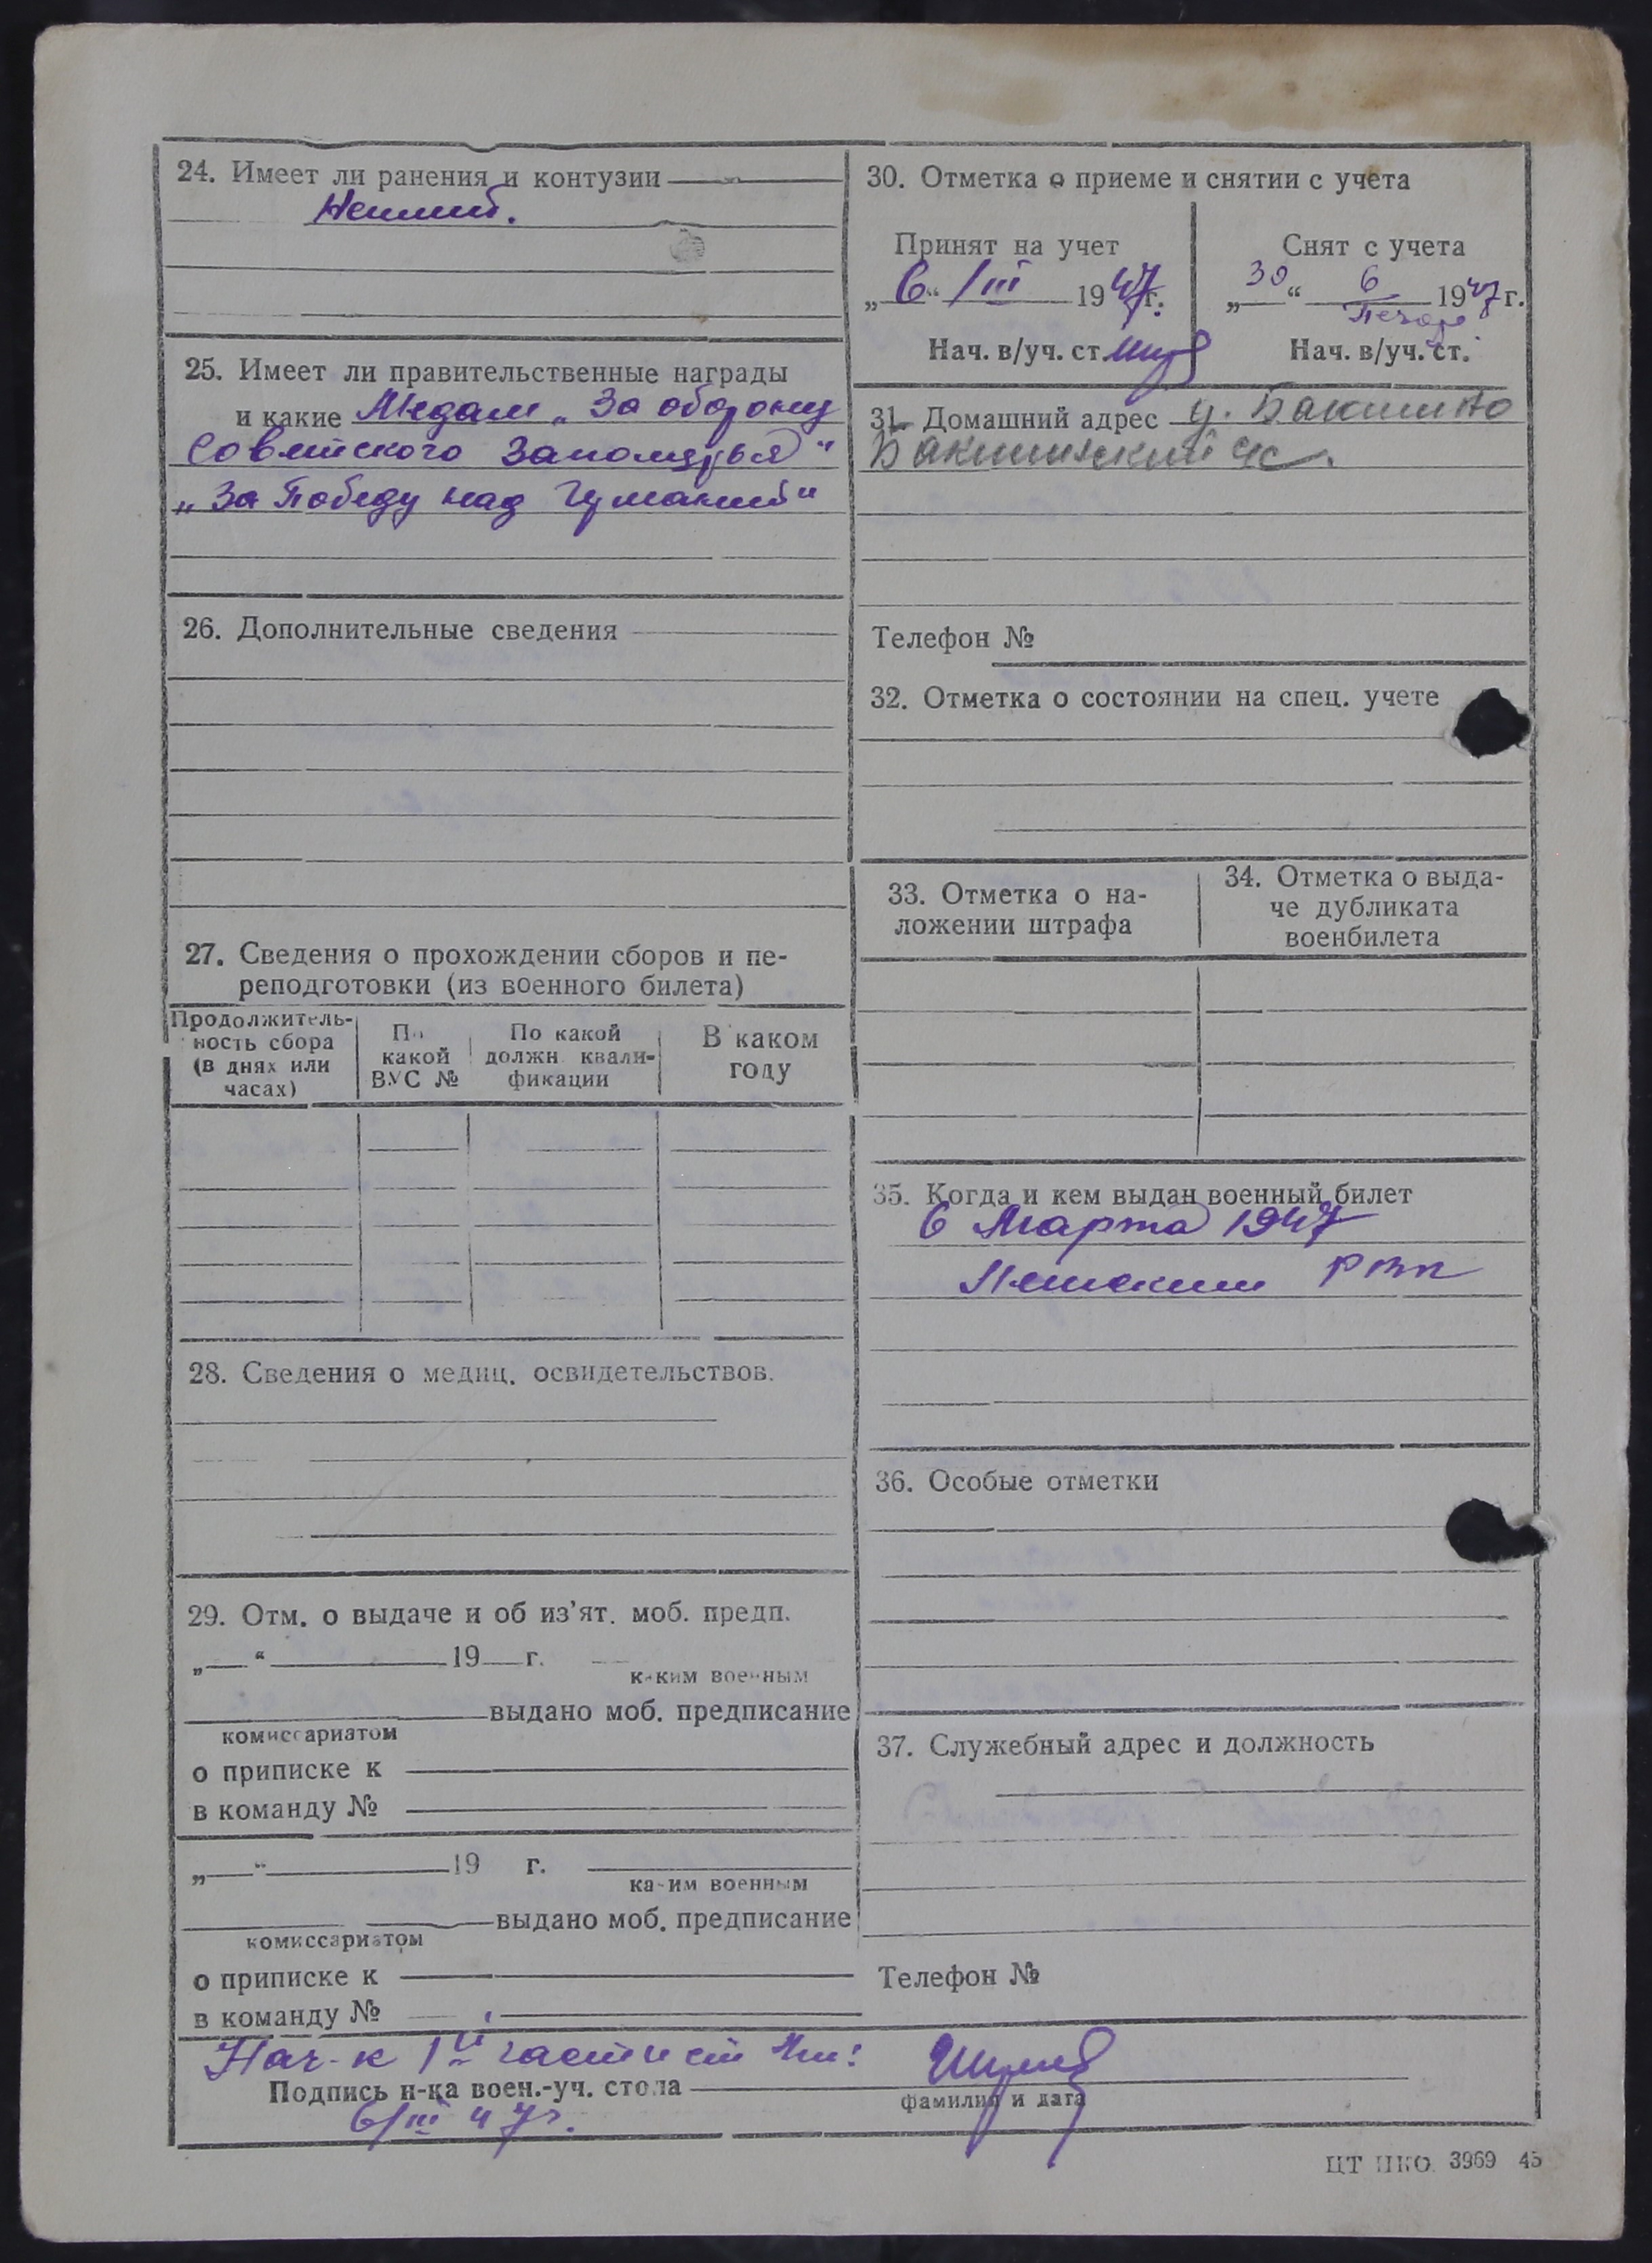 24. Имеет ли ранения и контузии
Неимеет.
25. Имеет ли правительственные награды
и какие Медали „За оборону
Советского Заполярья“
„За Победу над Германией“
26. Дополнительные сведения
27. Сведения о прохождении сборов и пе-
реподготовки (из военного билета)
Продолжитель-
ность сбора
(в днях или
часах)
По
какой
ВУС №
По какой
должн. квали-
фикации
В каком
году
28. Сведения о медиц. освидетельствов.
29. Отм. о выдаче и об из’ят. моб. предп.
„ “ 19 г.
каким военным
выдано моб. предписание
комиссариатом
о приписке к
в команду №
„ “ 19 г.
каким военным
выдано моб. предписание
комиссариатом
о приписке к
в команду №
30. Отметка о приеме и снятии с учета
Принят на учет
„6“ /III 1947г.
Нач. в/уч. ст.
Снят с учета
„30“ 6 1947г.
Нач. в/уч. ст.
31. Домашний адрес д. Бакшино
Бакшинский с/с.
Телефон №
32. Отметка о состоянии на спец. учете
33. Отметка о на-
ложении штрафа
34. Отметка о выда-
че дубликата
военбилета
35. Когда и кем выдан военный билет
6 Марта 1947
РВК
36. Особые отметки
37. Служебный адрес и должность
Телефон №
Нач-к 1й части
Подпись н-ка воен.-уч. стола
фамилия и дата
6/III 47г.
ЦТ НКО 3969 45